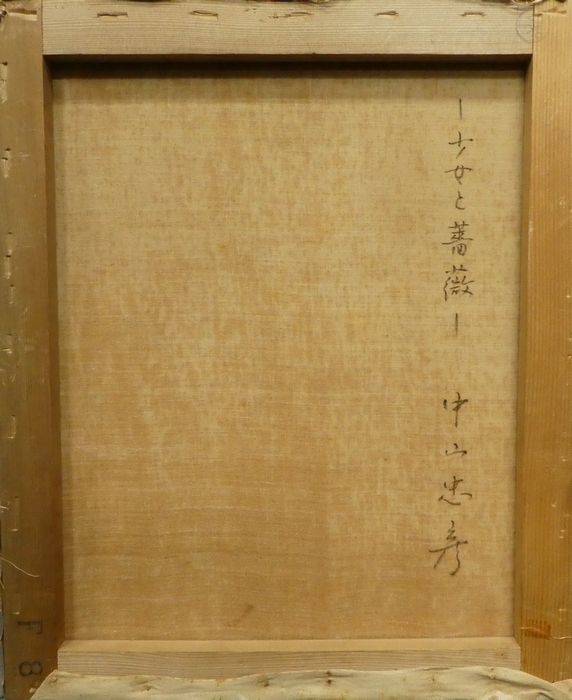 ー少女と薔薇ー 中山忠彦
F8